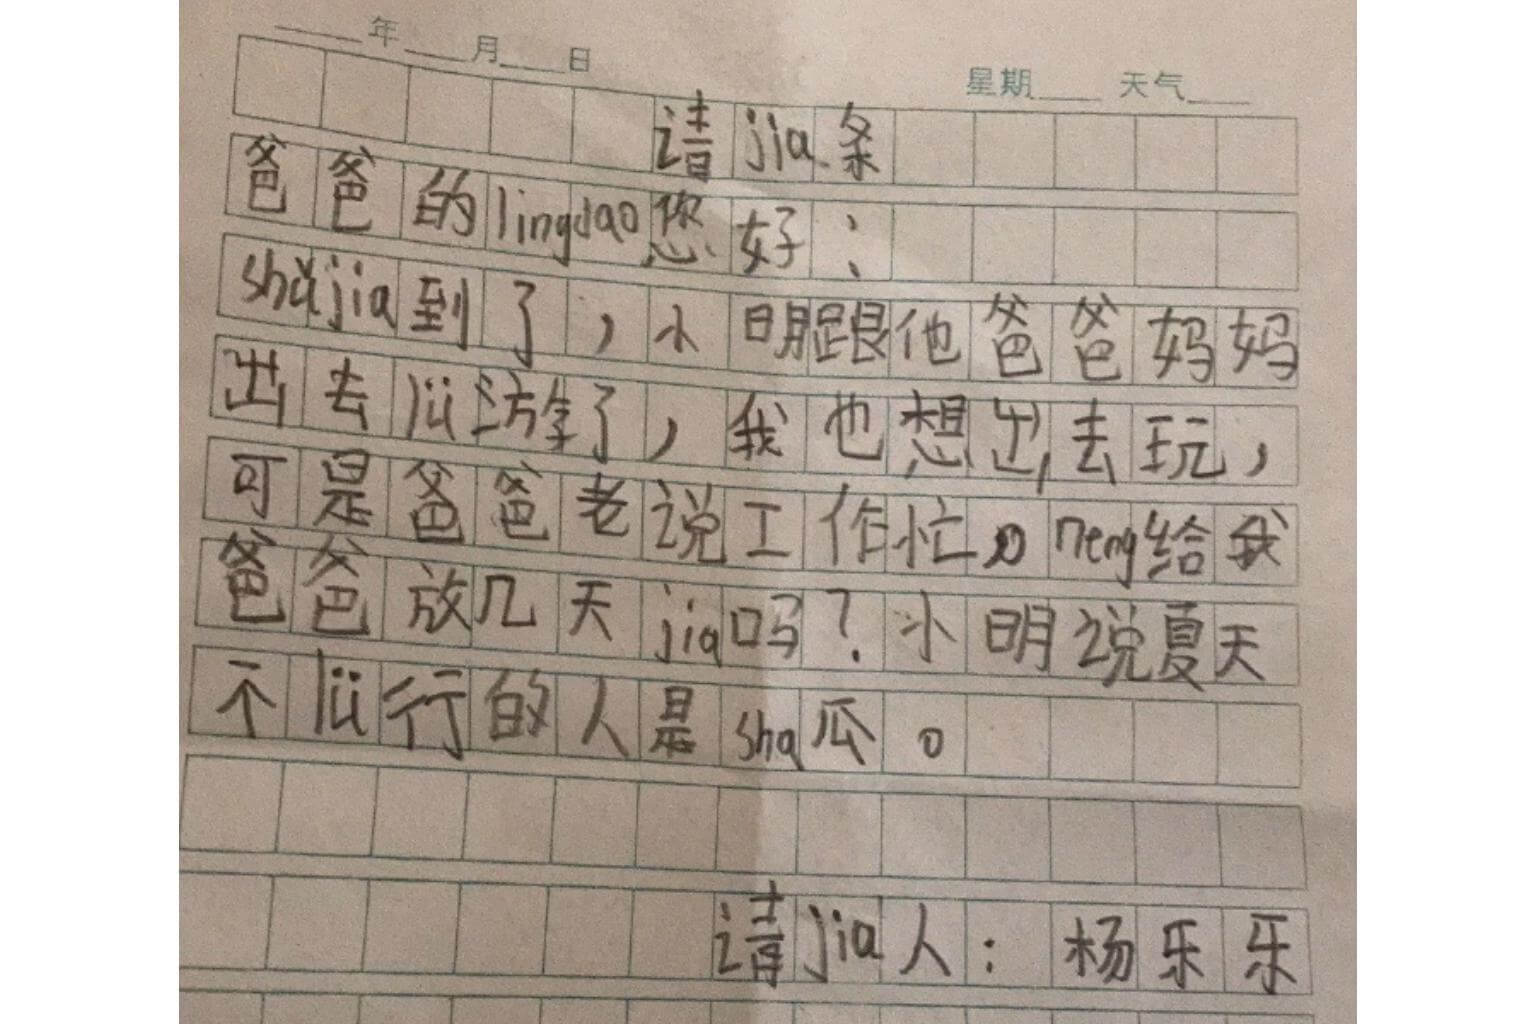 ____年____月____日 星期____ 天气____
请jia条
爸爸的lingdao您好：
shǔjia到了，小明跟他爸爸妈妈
出去lü游了，我也想出去玩，
可是爸爸老说工作忙。neng给我
爸爸放几天jia吗？小明说夏天
不lü行的人是sha瓜。
请jia人：杨乐乐